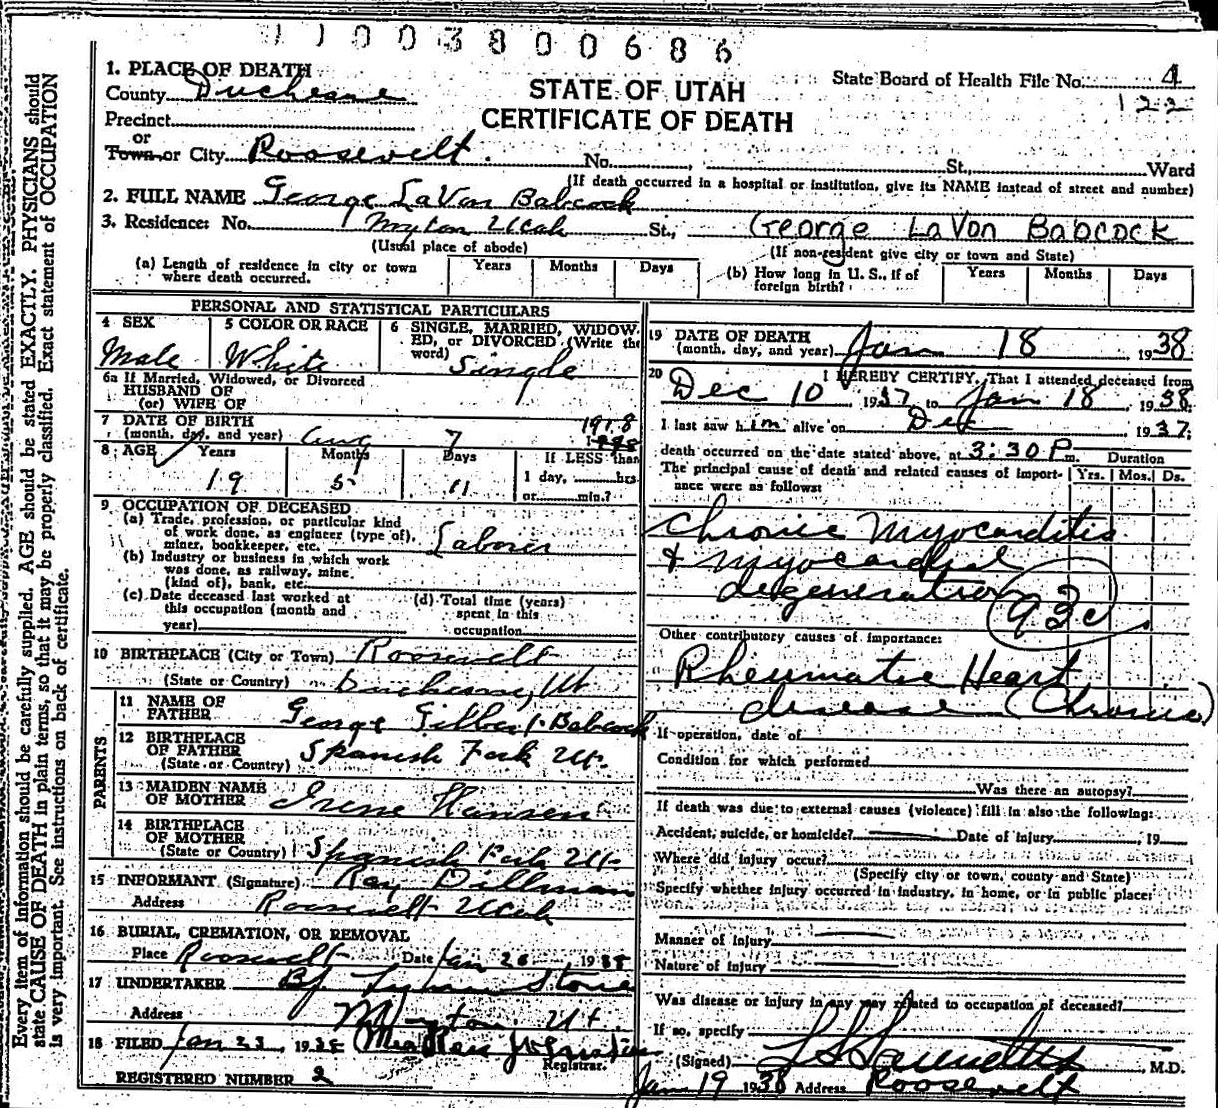 11003800686
1. PLACE OF DEATH
County Duchesne
STATE OF UTAH
State Board of Health File No. 4
122
Precinct
CERTIFICATE OF DEATH
or
Town or City Roosevelt. No. , St., Ward
(If death occurred in a hospital or institution, give its NAME instead of street and number)
2. FULL NAME George LaVon Babcock
3. Residence: No. Myton Utah St., George LaVon Babcock
(Usual place of abode) (If non-resident give city or town and State)
(a) Length of residence in city or town where death occurred. Years Months Days
(b) How long in U. S., if of foreign birth? Years Months Days
PERSONAL AND STATISTICAL PARTICULARS
4 SEX Male
5 COLOR OR RACE White
6 SINGLE, MARRIED, WIDOWED, or DIVORCED (Write the word) Single
6a If Married, Widowed, or Divorced
HUSBAND OF
(or) WIFE OF
7 DATE OF BIRTH
(month, day, and year) Aug 7 1918
8 AGE Years Months Days If LESS than
19 5 11 1 day, hrs.
or min.?
9 OCCUPATION OF DECEASED
(a) Trade, profession, or particular kind
of work done, as engineer (type of),
miner, bookkeeper, etc. Laborer
(b) Industry or business in which work
was done, as railway, mine,
(kind of), bank, etc.
(c) Date deceased last worked at
this occupation (month and
year)
(d) Total time (years)
spent in this
occupation
10 BIRTHPLACE (City or Town) Roosevelt
(State or Country) Duchesne, Ut
PARENTS
11 NAME OF
FATHER George Gilbert Babcock
12 BIRTHPLACE
OF FATHER
(State or Country) Spanish Fork Ut.
13 MAIDEN NAME
OF MOTHER Irene Hansen
14 BIRTHPLACE
OF MOTHER
(State or Country) Spanish Fork Ut.
15 INFORMANT (Signature) Ray Dillman
Address Roosevelt Utah
16 BURIAL, CREMATION, OR REMOVAL
Place Roosevelt Date Jan 20 1938
17 UNDERTAKER By
Address Myton, Ut.
18 FILED Jan 23, 1938
Registrar.
REGISTERED NUMBER 2
19 DATE OF DEATH
(month, day, and year) Jan 18 1938
20 I HEREBY CERTIFY, That I attended deceased from
Dec 10 1937 to Jan 18, 1938
I last saw him alive on Dec 1937;
death occurred on the date stated above, at 3:30 P m. Duration
The principal cause of death and related causes of importance were as follows: Yrs. Mos. Ds.
Chronic Myocarditis
& Myocardial
degeneration 93c
Other contributory causes of importance:
Rheumatic Heart
disease (Chronic)
If operation, date of
Condition for which performed
Was there an autopsy?
If death was due to external causes (violence) fill in also the following:
Accident, suicide, or homicide? Date of injury , 19
Where did injury occur?
(Specify city or town, county and State)
Specify whether injury occurred in industry, in home, or in public place:
Manner of Injury
Nature of Injury
Was disease or injury in any way related to occupation of deceased?
If so, specify
(Signed) , M.D.
Jan 19 1938 Address Roosevelt
Every item of information should be carefully supplied. AGE should be stated EXACTLY. PHYSICIANS should
state CAUSE OF DEATH in plain terms, so that it may be properly classified. Exact statement of OCCUPATION
is very important. See instructions on back of certificate.